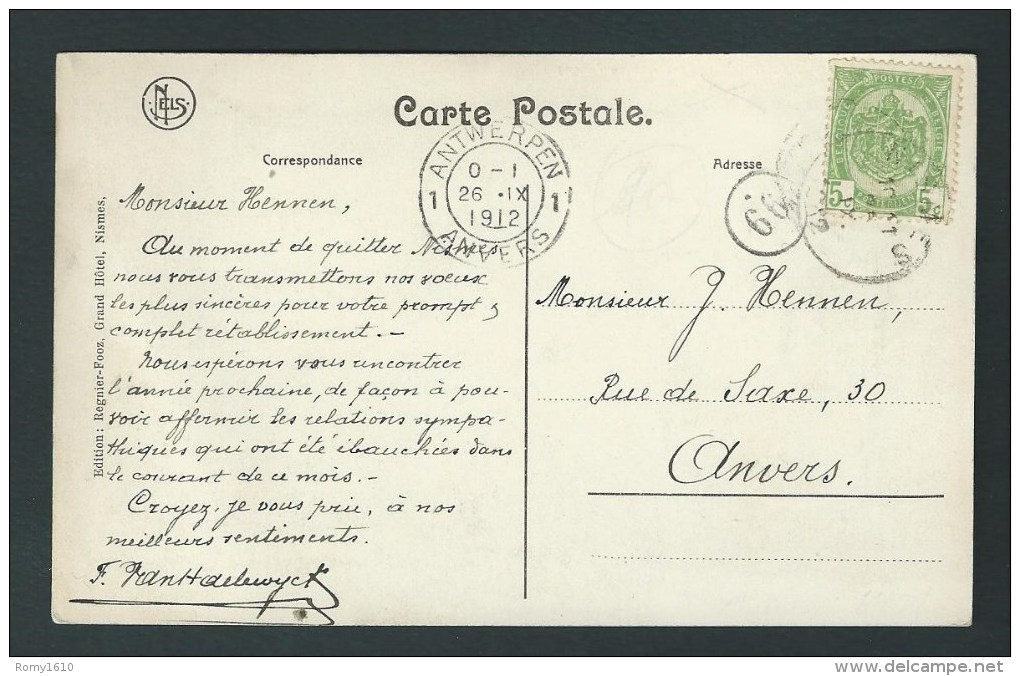 NELS
Carte Postale.
Correspondance
Adresse
ANTWERPEN
0-1
1 26 .IX 1
1912
ANVERS
99
POSTES
5c 5c
Monsieur Hennen,
Au moment de quitter Nismes
nous vous transmettons nos vœux
les plus sincères pour votre prompt &
complet rétablissement. —
Nous espérons vous rencontrer
l'année prochaine, de façon à pou-
voir affermir les relations sympa-
thiques qui ont été ébauchées dans
le courant de ce mois. —
Croyez, je vous prie, à nos
meilleurs sentiments.
F. VanHaelewyck
Monsieur J. Hennen,
Rue de Saxe, 30
Anvers.
Edition: Regnier-Fooz, Grand Hôtel, Nismes,
Romy1610
www.delcampe.net